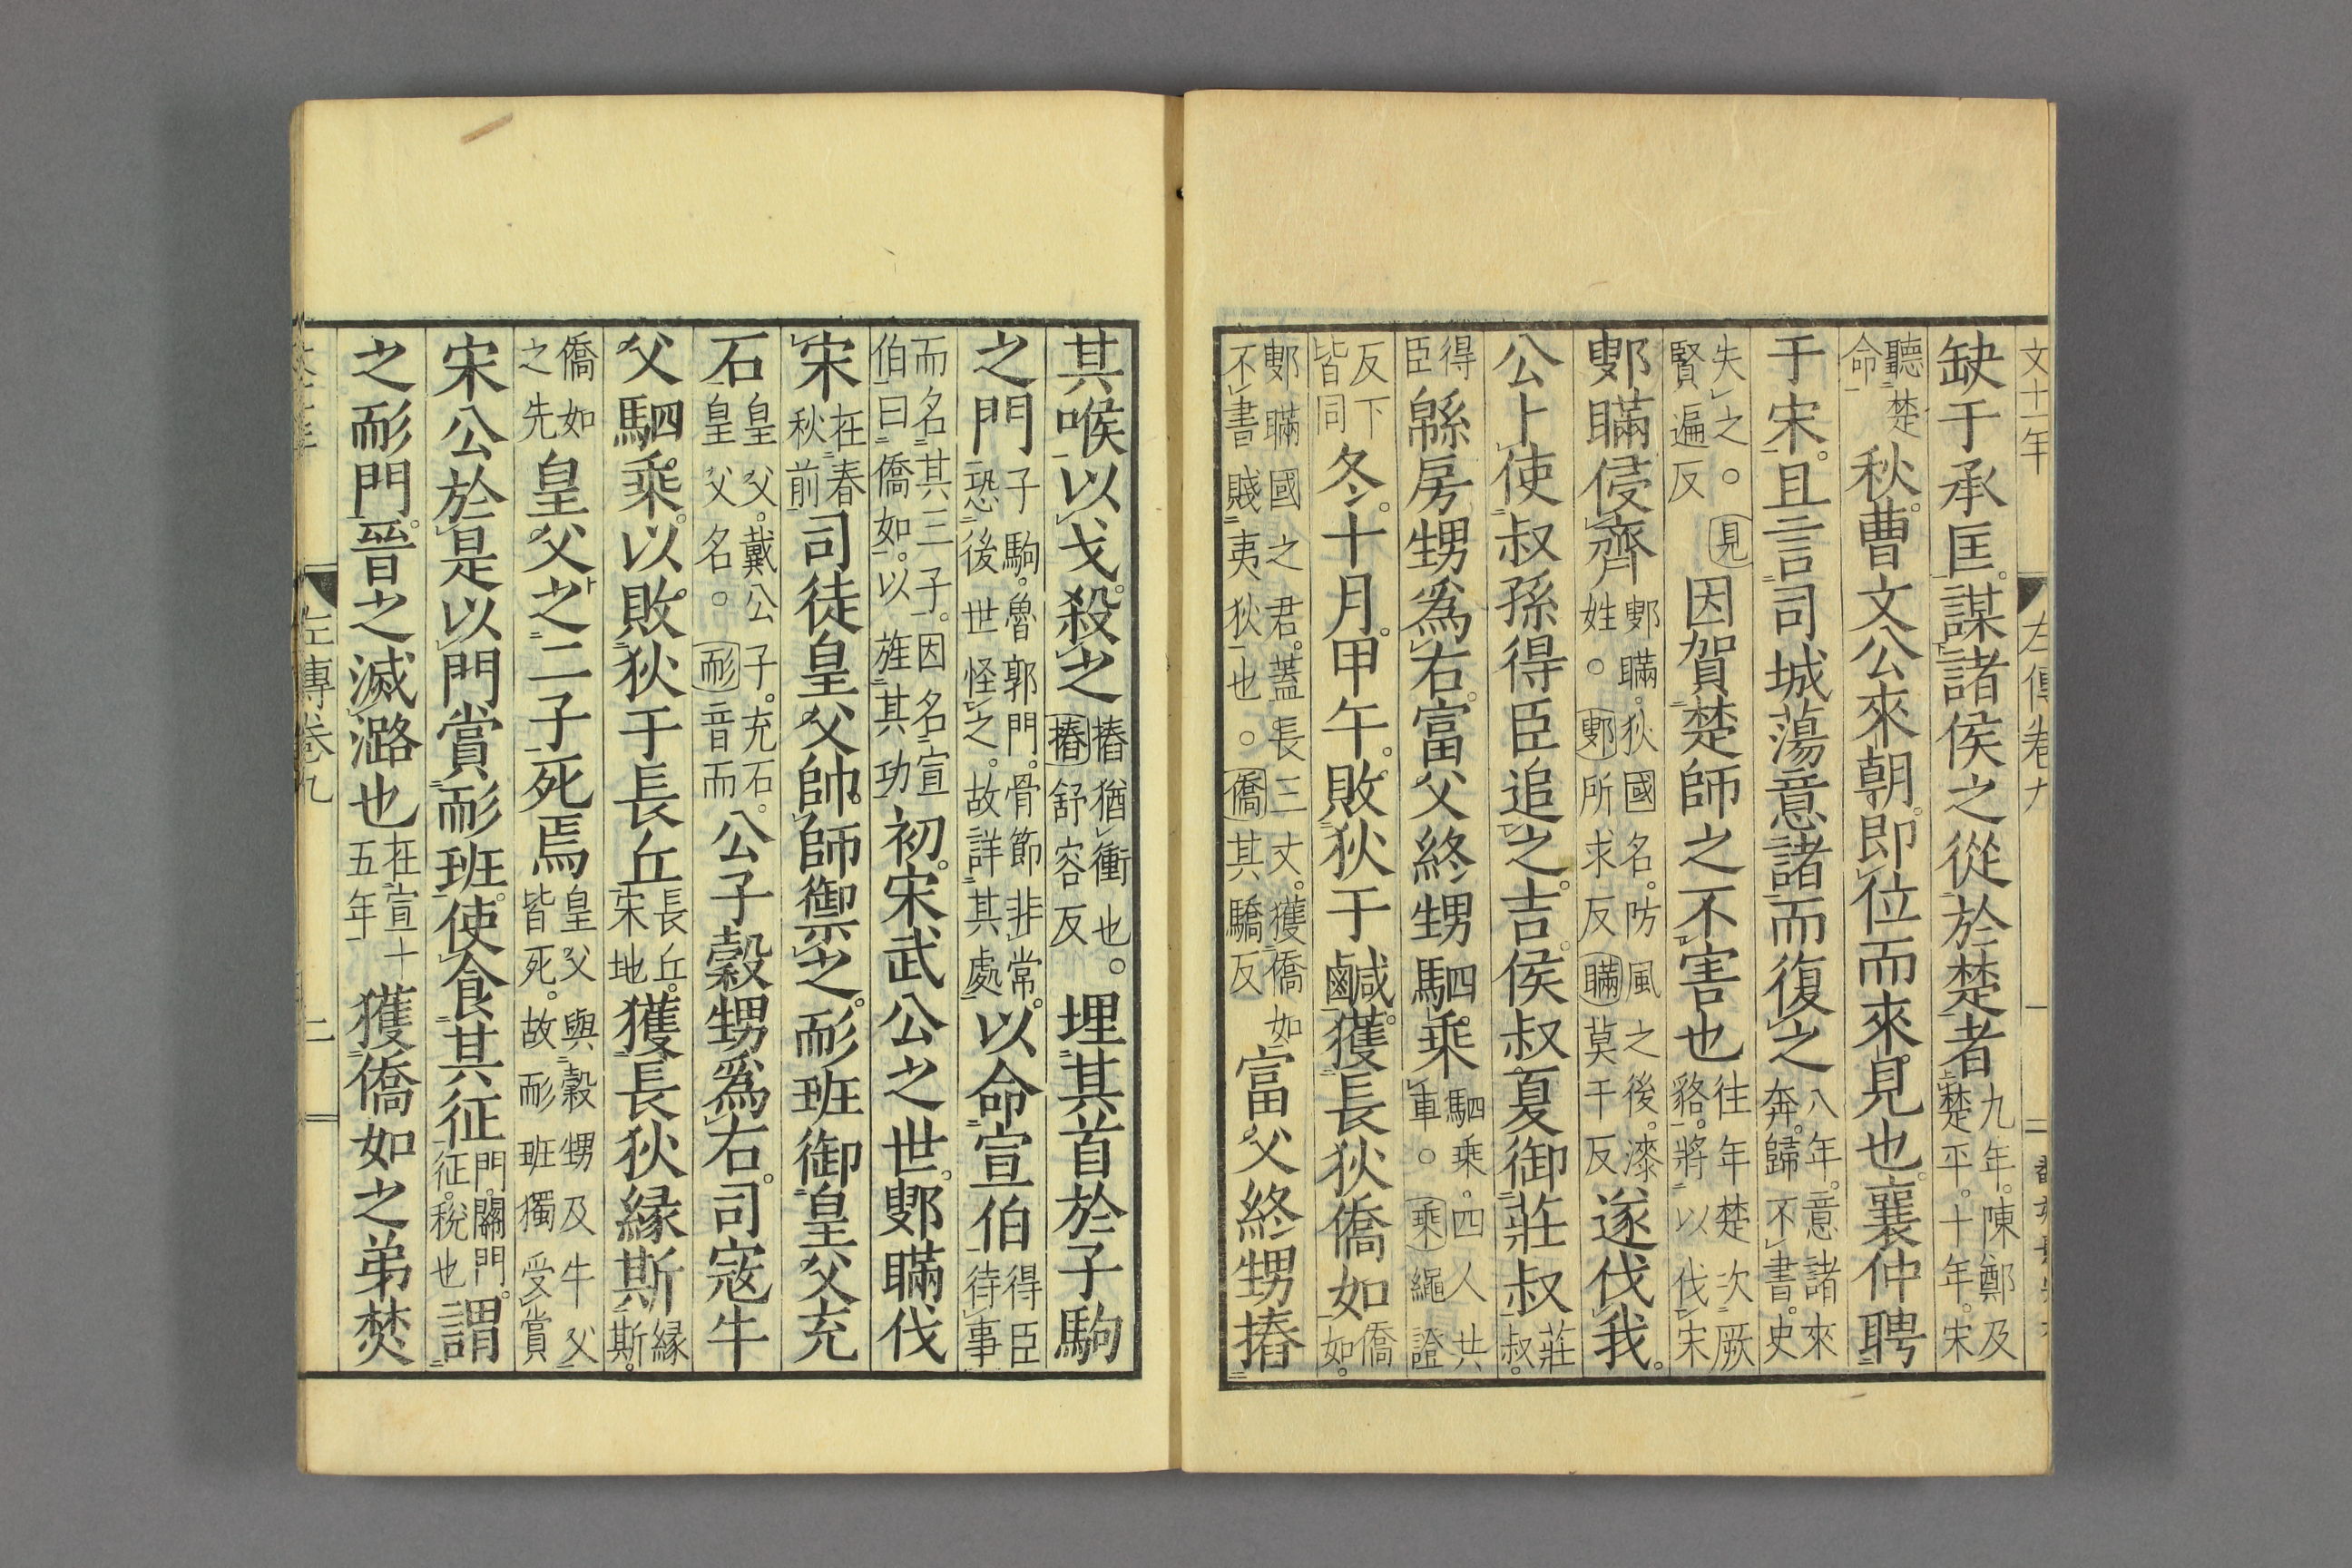 文十一年 左傳卷九 一
缺于承匡。謀諸侯之從於楚者九年。陳鄭及楚平。十年。宋
聽楚命秋。曹文公來朝。即位而來見也。襄仲聘
于宋。且言司城蕩意諸而復之八年。意諸來奔。歸不書。史
失之。見賢遍反因賀楚師之不害也往年楚次厥貉。將以伐宋
鄋瞞侵齊鄋瞞。狄國名。防風之後。漆姓。鄋所求反瞞莫干反遂伐我。
公卜使叔孫得臣追之。吉。侯叔夏御莊叔莊叔。
得臣緜房甥爲右。富父終甥駟乘駟乘。四人共車。乘繩證
反下皆同冬。十月。甲午。敗狄于鹹。獲長狄僑如僑如。
鄋瞞國之君。蓋長三丈。獲僑如不書賤夷狄也。僑其驕反富父終甥摏
其喉以戈。殺之摏猶衝也。摏舒容反埋其首於子駒
之門子駒。魯郭門。骨節非常。恐後世怪之。故詳其處以命宣伯得臣待事
而名其三子。因名宣伯曰僑如。以旌其功初。宋武公之世。鄋瞞伐
宋在春秋前司徒皇父帥師禦之。耏班御皇父充
石皇父。戴公子。充石。皇父名。耏音而公子穀甥爲右。司寇牛
父駟乘。以敗狄于長丘長丘。宋地獲長狄緣斯緣斯。
僑如之先皇父之二子死焉皇父與穀甥及牛父皆死。故耏班獨受賞
宋公於是以門賞耏班。使食其征門。關門。征。稅也謂
之耏門。晉之滅潞也在宣十五年獲僑如之弟焚
左傳卷九 二